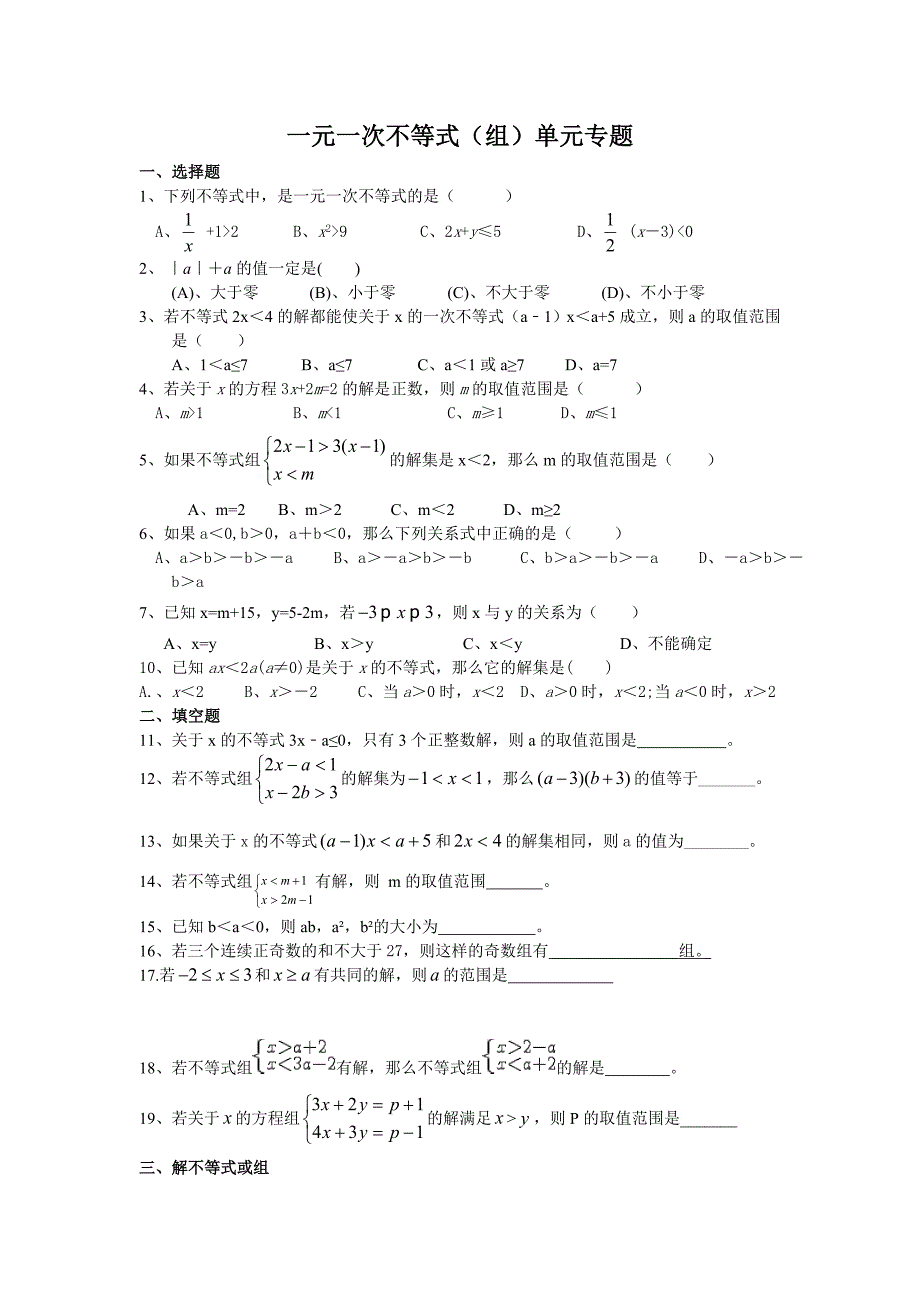 一元一次不等式（组）单元专题
一、选择题
1、下列不等式中，是一元一次不等式的是（　　）
A、1/x +1>2 B、x²>9 C、2x+y≤5 D、1/2 (x－3)<0
2、｜a｜＋a 的值一定是(　　)
(A)、大于零 (B)、小于零 (C)、不大于零 (D)、不小于零
3、若不等式 2x＜4 的解都能使关于 x 的一次不等式（a﹣1）x＜a+5 成立，则 a 的取值范围
是（　　）
A、1＜a≤7 B、a≤7 C、a＜1 或 a≥7 D、a=7
4、若关于 x 的方程 3x+2m=2 的解是正数，则 m 的取值范围是（　　）
A、m>1 B、m<1 C、m≥1 D、m≤1
5、如果不等式组 { 2x－1＞3(x－1) x＜m 的解集是 x＜2，那么 m 的取值范围是（　　）
A、m=2 B、m＞2 C、m＜2 D、m≥2
6、如果 a＜0,b＞0，a＋b＜0，那么下列关系式中正确的是（　　）
A、a＞b＞－b＞－a B、a＞－a＞b＞－b C、b＞a＞－b＞－a D、－a＞b＞－
b＞a
7、已知 x=m+15，y=5-2m，若 −3 p x p 3，则 x 与 y 的关系为（　　）
A、x=y B、x＞y C、x＜y D、不能确定
10、已知 ax＜2a(a≠0)是关于 x 的不等式，那么它的解集是(　　)
A.、x＜2 B、x＞－2 C、当 a＞0 时，x＜2 D、a＞0 时，x＜2;当 a＜0 时，x＞2
二、填空题
11、关于 x 的不等式 3x﹣a≤0，只有 3 个正整数解，则 a 的取值范围是___________。
12、若不等式组 { 2x−a<1 x−2b>3 的解集为 −1<x<1，那么 (a−3)(b+3) 的值等于_______。
13、如果关于 x 的不等式 (a−1)x<a+5 和 2x<4 的解集相同，则 a 的值为________。
14、若不等式组 { x<m+1 x>2m−1 有解，则 m 的取值范围_______。
15、已知 b＜a＜0，则 ab，a²，b²的大小为____________。
16、若三个连续正奇数的和不大于 27，则这样的奇数组有________________组。
17.若 −2≤x≤3 和 x≥a 有共同的解，则 a 的范围是_____________
18、若不等式组 { x>a+2 x<3a-2 有解，那么不等式组 { x>2-a x<a+2 的解是________。
19、若关于 x 的方程组 { 3x+2y=p+1 4x+3y=p−1 的解满足 x>y，则 P 的取值范围是_______
三、解不等式或组